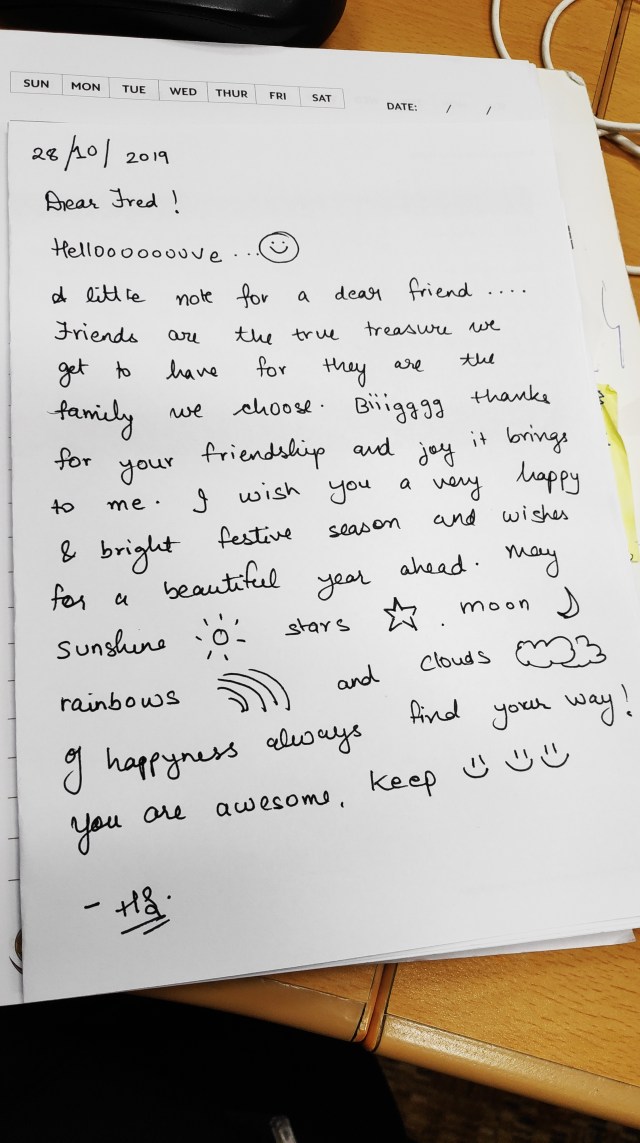 SUN MON TUE WED THUR FRI SAT DATE: / /
28/10/2019
Dear Fred !
Helloooooouve ...
A little note for a dear friend ....
Friends are the true treasure we
get to have for they are the
family we choose. Biiigggg thanks
for your friendship and joy it brings
to me. I wish you a very happy
& bright festive season and wishes
for a beautiful year ahead. May
sunshine stars . moon
rainbows and clouds
of happyness always find your way!
You are awesome. Keep